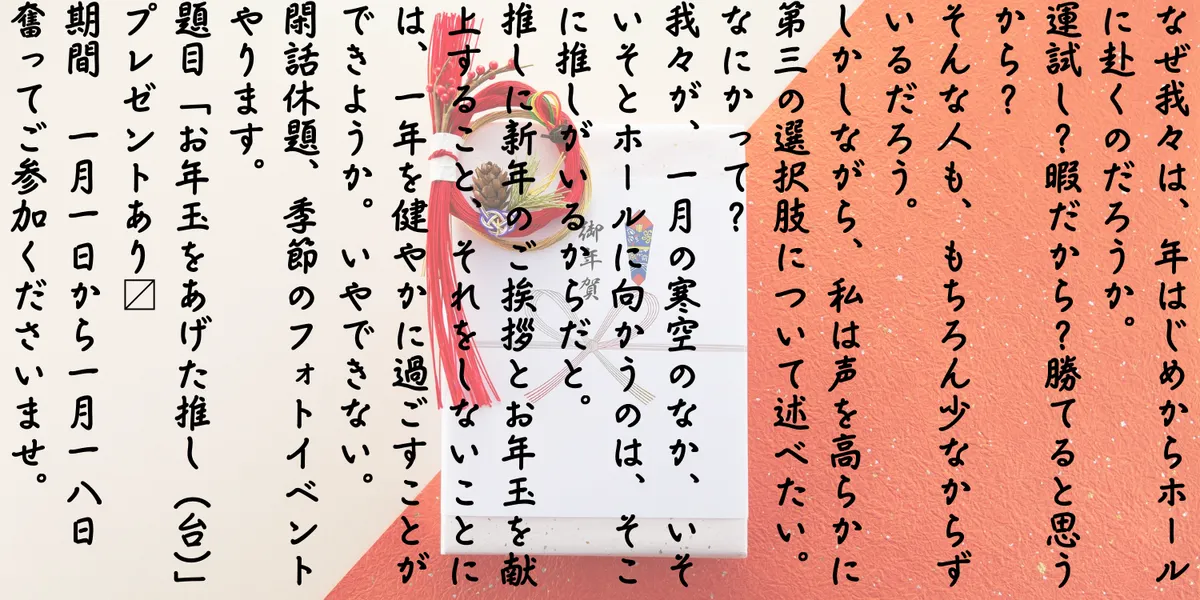 なぜ我々は、年はじめからホール
に赴くのだろうか。
運試し？暇だから？勝てると思う
から？
そんな人も、もちろん少なからず
いるだろう。
しかしながら、私は声を高らかに
第三の選択肢について述べたい。
なにかって？
我々が、一月の寒空のなか、いそ
いそとホールに向かうのは、そこ
に推しがいるからだと。
推しに新年のご挨拶とお年玉を献
上すること、それをしないことに
は、一年を健やかに過ごすことが
できようか。いやできない。
閑話休題、季節のフォトイベント
やります。
題目「お年玉をあげた推し（台）」
プレゼントあり〼
期間　一月一日から一月一八日
奮ってご参加くださいませ。
御年賀